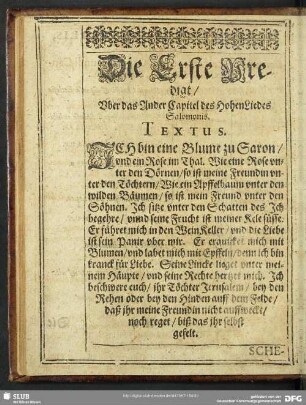 Die Erste Pre-
digt/
Vber das Ander Capitel des Hohen Liedes
Salomonis.
TEXTUS.
ICH bin eine Blume zu Saron/
vnd ein Rose im Thal. Wie eine Rose vn-
ter den Dörnen/ so ist meine Freundin vn-
ter den Töchtern/ Wie ein Apffelbaum vnter den
wilden Bäumen/ so ist mein Freund vnter den
Söhnen. Ich sitze vnter den Schatten des Ich
begehre/ vnnd seine Frucht ist meiner Kele süsse.
Er führet mich in den WeinKeller/ vnd die Liebe
ist sein Panir vber mir. Er erquicket mich mit
Blumen/ vnd labet mich mit Epffeln/ denn ich bin
kranck für Liebe. Seine Lincke liget vnter mei-
nem Häupte/ vnd seine Rechte hertzet mich. Ich
beschwere euch/ ihr Töchter Jerusalem/ bey den
Rehen oder bey den Hinden auff dem Felde/
daß ihr meine Freundin nicht auffweckt/
noch reget/ biß das ihr selbst
gefelt.
SCHE-
SLUB
DFG